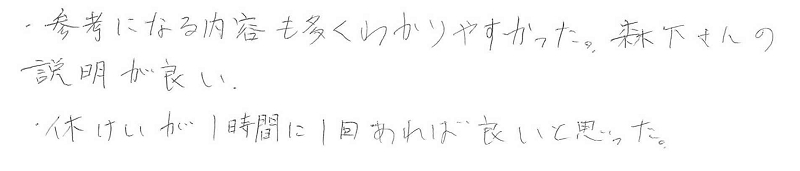 ・参考になる内容も多くわかりやすかった。森下さんの
説明が良い.
・休けいが1時間に1回あれば良いと思った。